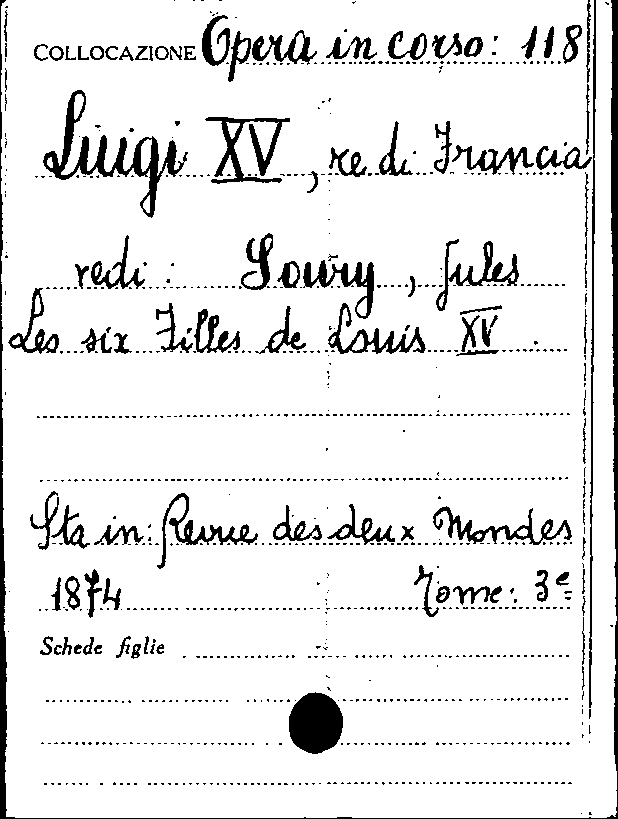 COLLOCAZIONE Opera in corso: 118
Luigi XV, re di Francia
vedi: Soury, Jules
Les six Filles de Louis XV.
Sta in: Revue des deux Mondes
1874 Tome: 3e
Schede figlie